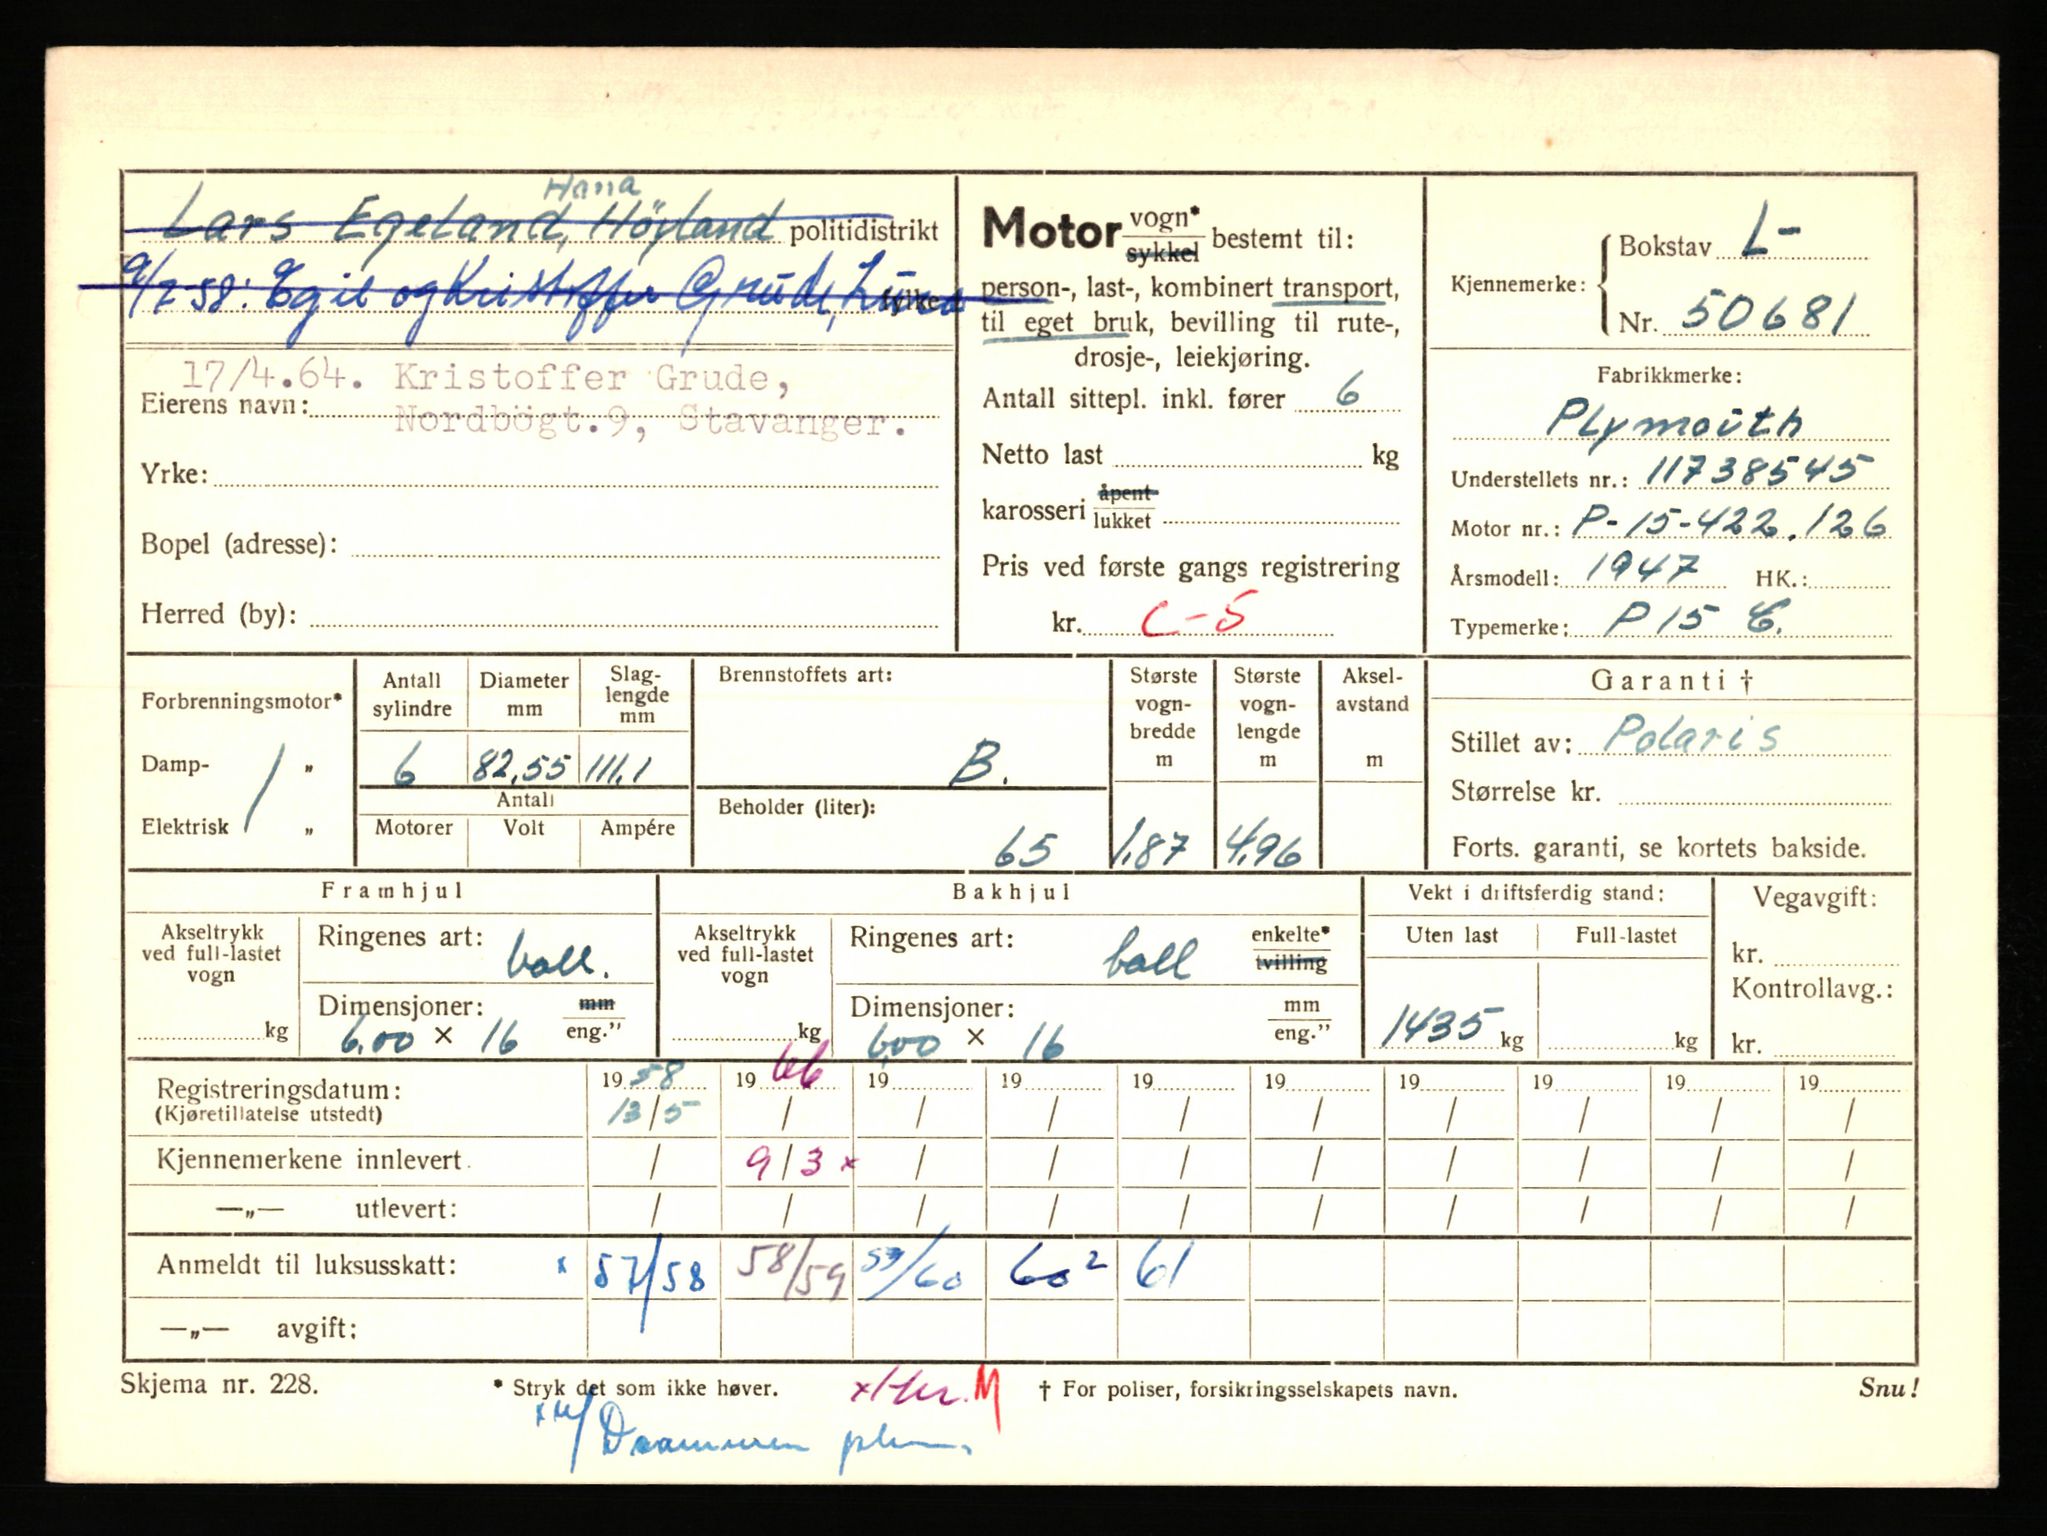 Hana
Lars Egeland, Höyland politidistrikt
9/7-58: Egil og Kristoffer Grude, Lura fylke
17/4.64. Kristoffer Grude,
Eierens navn: Nordbögt.9, Stavanger.
Yrke:
Bopel (adresse):
Herred (by):
Motor vogn* sykkel bestemt til:
person-, last-, kombinert transport,
til eget bruk, bevilling til rute-,
drosje-, leiekjøring.
Antall sittepl. inkl. fører 6
Netto last kg
karosseri åpent lukket
Pris ved første gangs registrering
kr. C-5
Kjennemerke: Bokstav L-
Nr. 50681
Fabrikkmerke:
Plymouth
Understellets nr.: 11738545
Motor nr.: P-15-422.126
Årsmodell: 1947 HK.:
Typemerke: P 15 C.
Forbrenningsmotor*
Damp- "
Elektrisk "
Antall sylindre Diameter mm Slag-lengde mm
6 82,55 111,1
Antall
Motorer Volt Ampére
Brennstoffets art:
B.
Beholder (liter):
65
Største vogn-bredde m
1,87
Største vogn-lengde m
4,96
Aksel-avstand m
Garanti †
Stillet av: Polaris
Størrelse kr.
Forts. garanti, se kortets bakside.
Framhjul
Akseltrykk ved full-lastet vogn
kg
Ringenes art: ball.
Dimensjoner: mm
6.00 × 16 eng."
Bakhjul
Akseltrykk ved full-lastet vogn
kg
Ringenes art: ball enkelte* tvilling
Dimensjoner: mm
600 × 16 eng."
Vekt i driftsferdig stand:
Uten last Full-lastet
1435 kg kg
Vegavgift:
kr.
Kontrollavg.:
kr.
Registreringsdatum: 1958 1966 19 19 19 19 19 19 19 19
(Kjøretillatelse utstedt) 13/5 / / / / / / / / /
Kjennemerkene innlevert. / 9/3 x / / / / / / / /
—„— utlevert: / / / / / / / / / /
Anmeldt til luksusskatt: x 57/58 58/59 59/60 60² 61
—„— avgift:
Skjema nr. 228. * Stryk det som ikke høver. † For poliser, forsikringsselskapets navn. Snu!
M